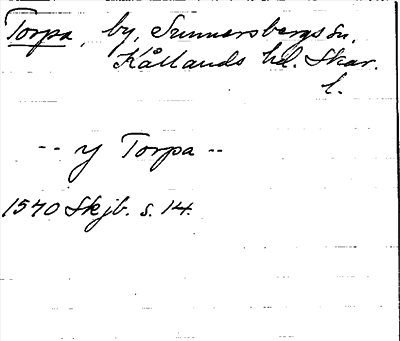 Torpa, by, Sunnersbergs sn,
Kållands hd. Skar.
l.
-- y Torpa --
1570 Skjb. s. 14.